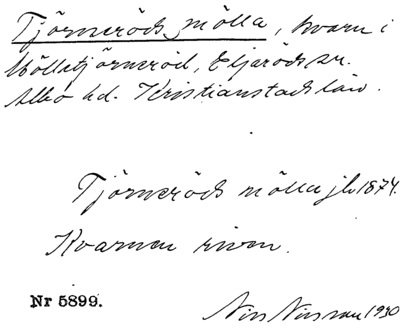 Tjörneröds mölla, kvarn i
Mölletjörneröd, Eljaröds sn.
Albo hd. Kristianstads län.
Tjörneröds mölla jb 1874.
Kvarnen riven.
Nr 5899.
Nils Nilsson 1930